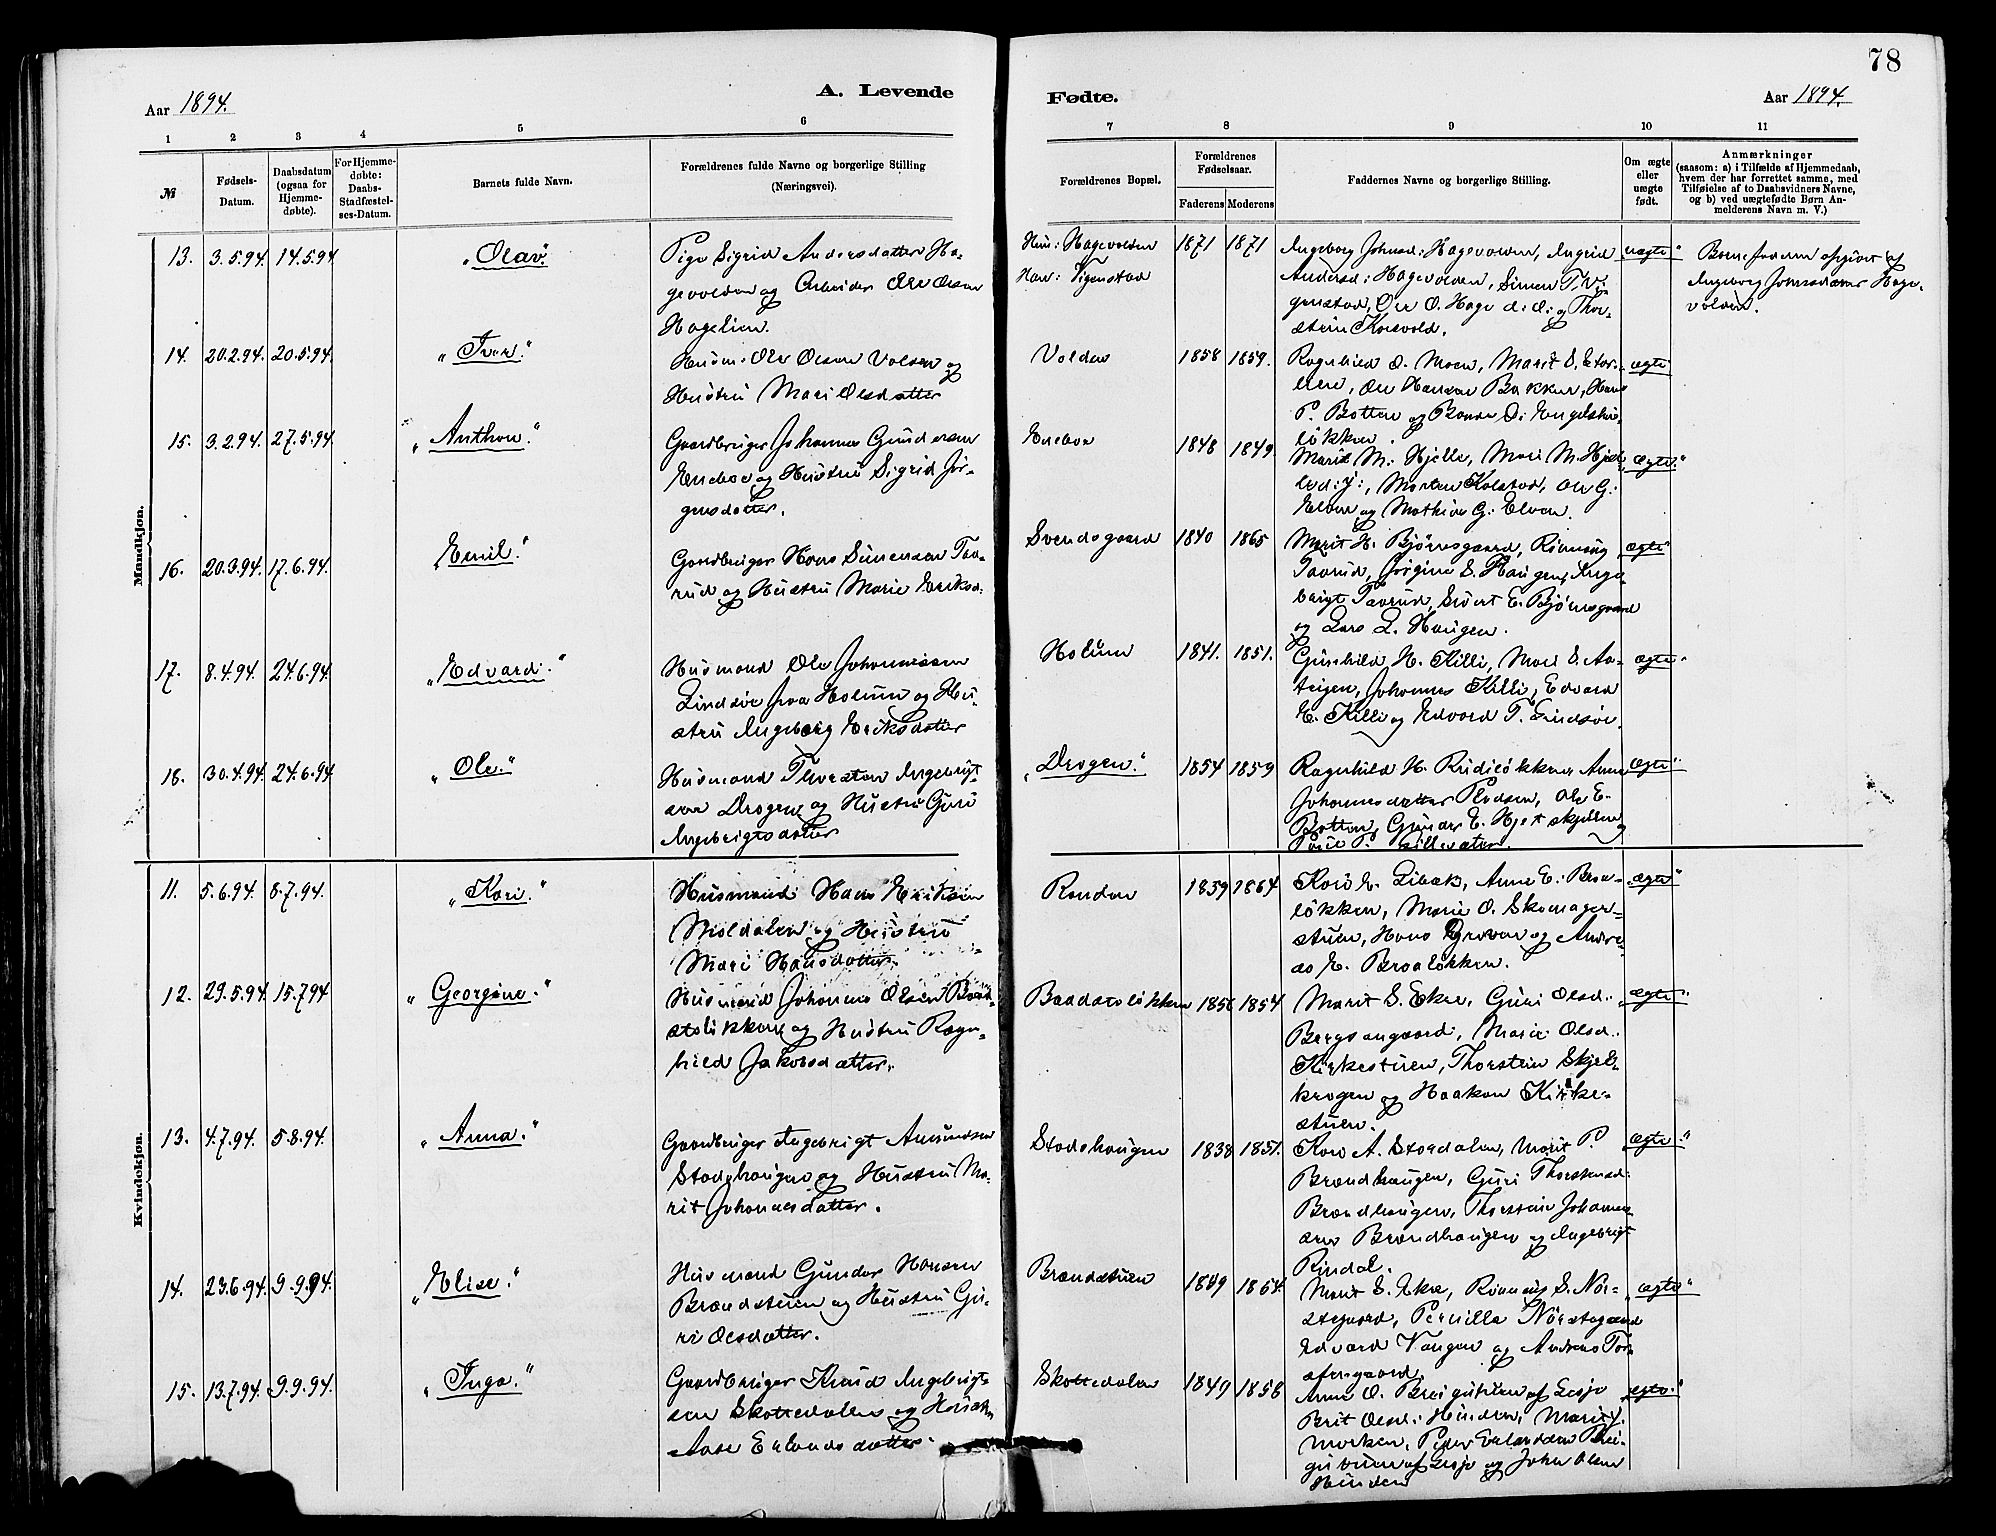 78
A. Levende
Fødte.
Aar 1894.
Aar 1894.
1 2 3 4 5 6 7 8 9 10 11
№
Fødsels-
Datum.
Daabsdatum
(ogsaa for
Hjemme-
døbte).
For Hjemme-
døbte:
Daabs-
Stadfæstel-
ses-Datum.
Barnets fulde Navn.
Forældrenes fulde Navne og borgerlige Stilling
(Næringsvei).
Forældrenes Bopæl.
Forældrenes
Fødselsaar.
Faderens Moderens
Faddernes Navne og borgerlige Stilling.
Om ægte
eller
uægte
født.
Anmærkninger
(saasom: a) i Tilfælde af Hjemmedaab,
hvem der har forrettet samme, med
Tilføielse af to Daabsvidners Navne,
og b) ved uægtefødte Børn An-
melderens Navn m. V.)
Mandkjøn.
13. 3.5.94. 14.5.94 "Olav"
Pige Sigrid Andersdatter Ha-
gevolden og Arbeider Ole Olsen
Hagelien.
Hun: Hagevolden 1871 1871
Han: Vigenstad
Ingeborg Johnsd: Hagevolden, Ingrid
Andersd: Hagevolden, Simen T. Vi-
genstad, Ole O. Hage d: d: og Thor-
stein Korsvold.
uægte"
Barnefaderen opgivet af
Ingeborg Johnsdatter Hage-
volden.
14. 20.2.94. 20.5.94. "Iver."
Husm: Ole Olsen Volden og
Hustru Mari Olsdatter
Volden 1858 1859.
Ragnhild O. Moen, Marit
Ole Hansen Bakken, Hans
P. Botten og
løkken.
ægte
15. 3.2.94. 27.5.94 "Anthon."
Gaardbruger Johannes Gundersen
Eneboe og Hustru Sigrid Jør-
gensdatter.
Eneboe 1848 1849.
Marit M: Hjelle, Mari M. Hjel-
le d: y:, Morten Kolstad, Ole G:
Elven og Mathias G: Elven.
ægte."
16. 20.3.94. 17.6.94. "Emil."
Gaardbruger Hans Simensen Tav-
rud og Hustru Marie Eriksd:
Svendsgaard 1840 1865
Marit H. Bjørnsgaard, Rønnaug
Tavrud, Jørgine S. Haugen, Inge-
brigt Tavrud, Sivert E. Bjørnsgaard
og Lars L. Haugen.
ægte"
17. 8.4.94. 24.6.94. "Edvard."
Husmand Ole Johannessen
Lindsøe fra Holum og Hu-
stru Ingeborg Eriksdatter
Holum 1841. 1851.
Gunhild H. Killi, Mari
teigen, Johannes Killi, Edvard
E. Killi og Edvard T. Lindsøe.
ægte"
18. 30.4.94. 24.6.94 "Ole."
Husmand Thorsten Ingebrigt-
sen Drogen og Hustru Guri
Ingebrigtsdatter
"Drogen." 1854 1859
Ragnhild H. Anne
Johannesdatter Plodsen, Ole E.
Botten, Gunder E. og
ægte"
Kvindekjøn.
11. 5.6.94. 8.7.94. "Kari."
Husmand: Hans Eriksen
Moldalen og Hustru
Mari Hansdatter.
Randen 1839 1864
Kari E. Libak, Anne E: Braa-
løkken, Marie O. Skomager-
stuen, Hans og Andre-
as E. Braaløkken.
ægte"
12. 29.5.94. 15.7.94 "Georgine."
Husmand Johannes Olsen Baad-
stoløkken og Hustru Ragn-
hild Jakobsdatter.
Baadstoløkken 1856 1854
Marit S. Ekre, Guri Olsd:
Bergsengaard, Marie Olsd:
Kirkestuen, Thorstein Skjel-
krogen og Haakon Kirke-
stuen.
ægte"
13. 4.7.94. 5.8.94. "Anna."
Gaardbruger Ingebrigt Amundsen
Stadshaugen og Hustru Ma-
rit Johannesdatter.
Stadshaugen 1838 1851.
Kari A. Stordalen, Marit P.
Brændhaugen, Guri Thorstensd:
Brændhaugen, Thorstein Johannes-
sen Brændhaugen og Ingebrigt
Rindal.
ægte."
14. 23.6.94. 9.9.94. "Elise."
Husmand Gunder Hansen
Brændstuen og Hustru Gu-
ri Olsdatter.
Brændstuen 1849 1864.
Marit S. Ekre, Rønnaug S. Nor-
stegaard, Pernille Nørstegaard
Edvard Vangen og Andreas Tof-
stegaard.
"ægte"
15. 13.7.94. 9.9.94. "Inga."
Gaardbruger Knud Ingebrigt-
sen Skottedalen og Hustru
Aase Erlandsdatter.
Skottedalen 1849 1856
Anne O. af Lesje
Brit Olsd: Hunden, Marit J.
Morken, Peder Erlandsen
af Lesje og John Olsen
Hunden
ægte."